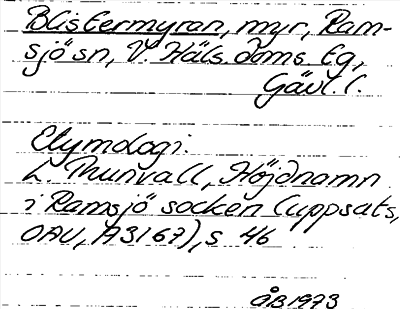 Blistermyran, myr, Ram-
sjö sn, V. Häls. doms. tg,
Gävl. l.
Etymologi:
L. Thunvall, Höjdnamn
i Ramsjö socken (uppsats,
OAU, A3167), s 46
ÅB 1973